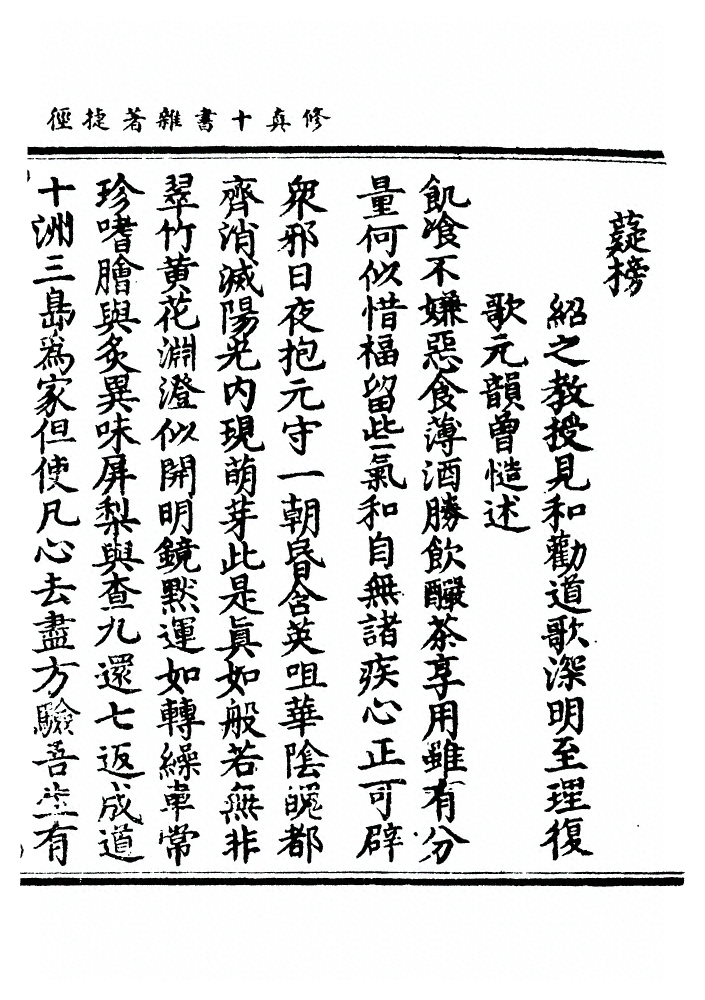 修真十書雜著捷徑
薿榜
紹之教授見和勸道歌深明至理復
歌元韻曾慥述
飢飡不嫌惡食薄酒勝飲釅茶享用雖有分
量何似惜福留些氣和自無諸疾心正可辟
衆邪日夜抱元守一朝昏含英咀華陰魄都
齊消滅陽光内現萌芽此是眞如般若無非
翠竹黃花淵澄似開明鏡默運如轉繰車常
珍嗜膾與炙異味屏梨與查九還七返成道
十洲三島爲家但使凡心去盡方驗吾生有